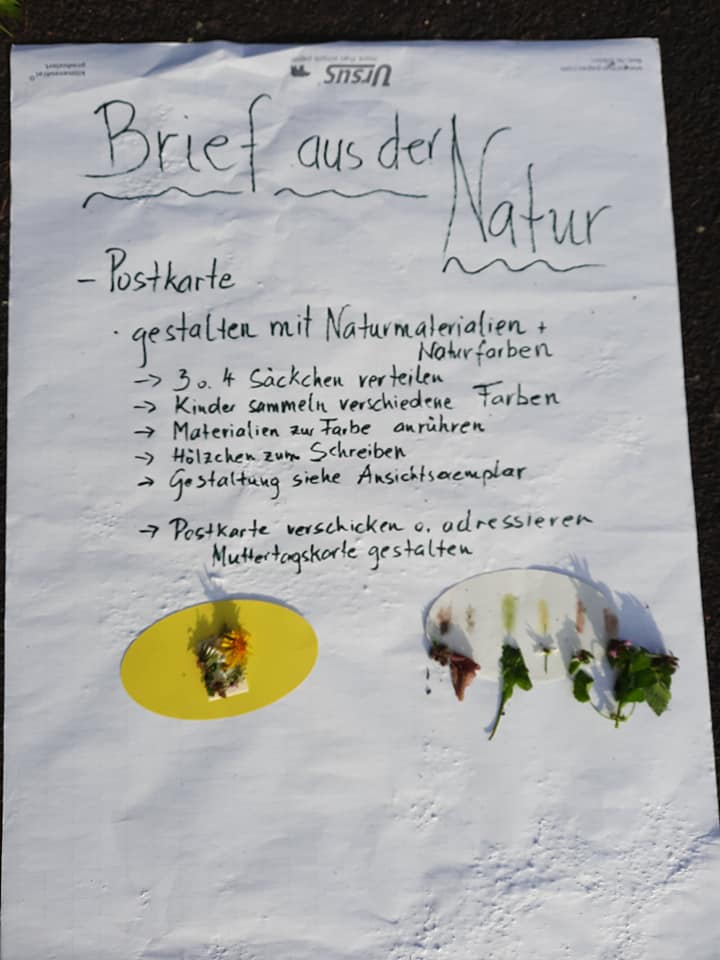 klimaneutral
produziert
URSUS
more than simple paper
Brief aus der
Natur
- Postkarte
· gestalten mit Naturmaterialien +
Naturfarben
-> 3 o. 4 Säckchen verteilen
-> Kinder sammeln verschiedene Farben
-> Materialien zur Farbe anrühren
-> Hölzchen zum Schreiben
-> Gestaltung siehe Ansichtsexemplar
-> Postkarte verschicken o. adressieren
Muttertagskarte gestalten